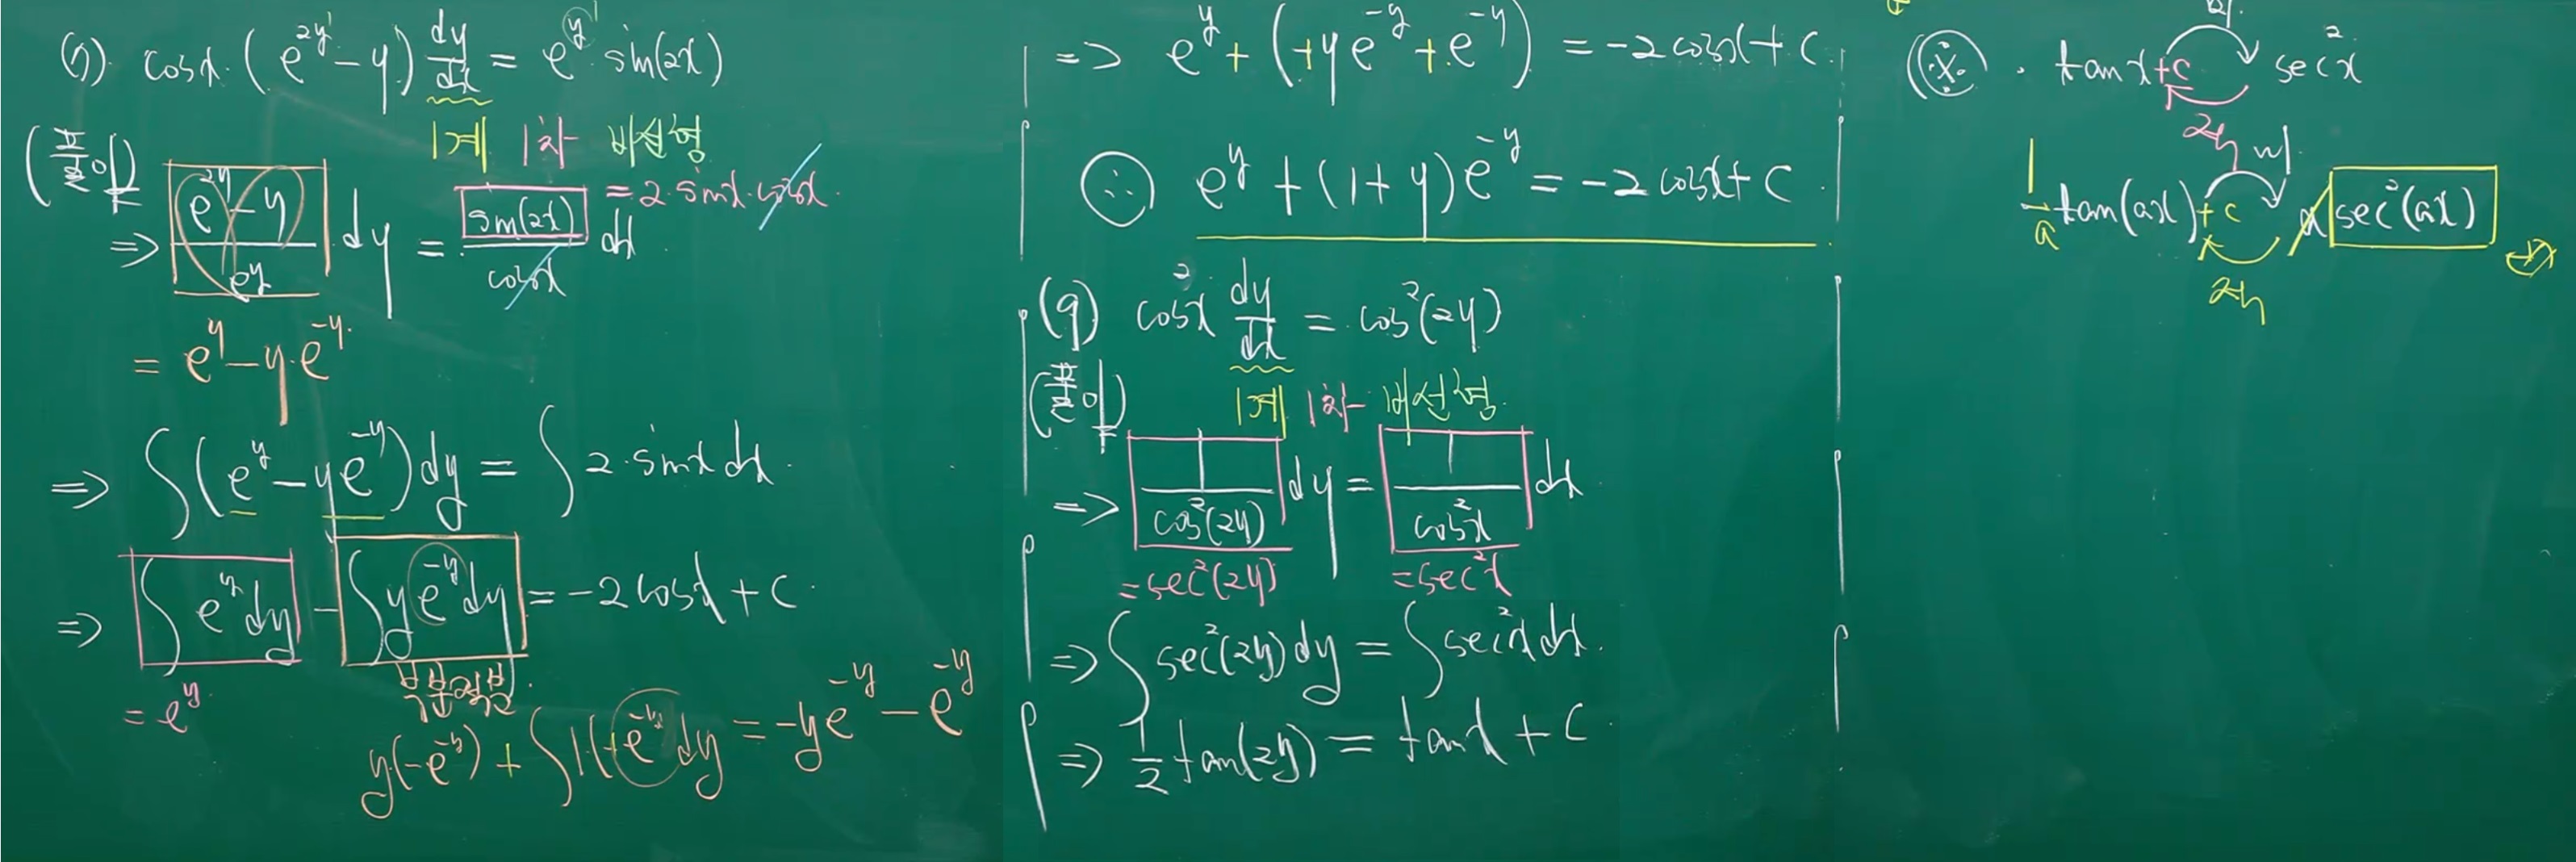 cosx·(e^{2y}-y) dy/dx = e^y·sin(2x)
1계 1차 비선형
(풀이)
⇒ (e^{2y}-y)/e^y dy = sin(2x)/cosx dx
= 2·sinx·cosx
= e^y-y·e^{-y}
⇒ ∫(e^y-ye^{-y})dy = ∫2·sinx dx
⇒ ∫e^y dy - ∫ye^{-y}dy = -2cosx+C
= e^y
부분적분
y(-e^{-y}) + ∫1·(+e^{-y})dy = -ye^{-y}-e^{-y}
⇒ e^y+(+ye^{-y}+e^{-y}) = -2cosx+C
∴ e^y+(1+y)e^{-y} = -2cosx+C
(9) cos²x dy/dx = cos²(2y)
1계 1차 비선형
(풀이)
⇒ 1/cos²(2y) dy = 1/cos²x dx
= sec²(2y) = sec²x
⇒ ∫sec²(2y)dy = ∫sec²x dx
⇒ 1/2 tan(2y) = tanx+C
※ · tanx+C sec²x
적
미
1/a tan(ax)+C a sec²(ax)
적